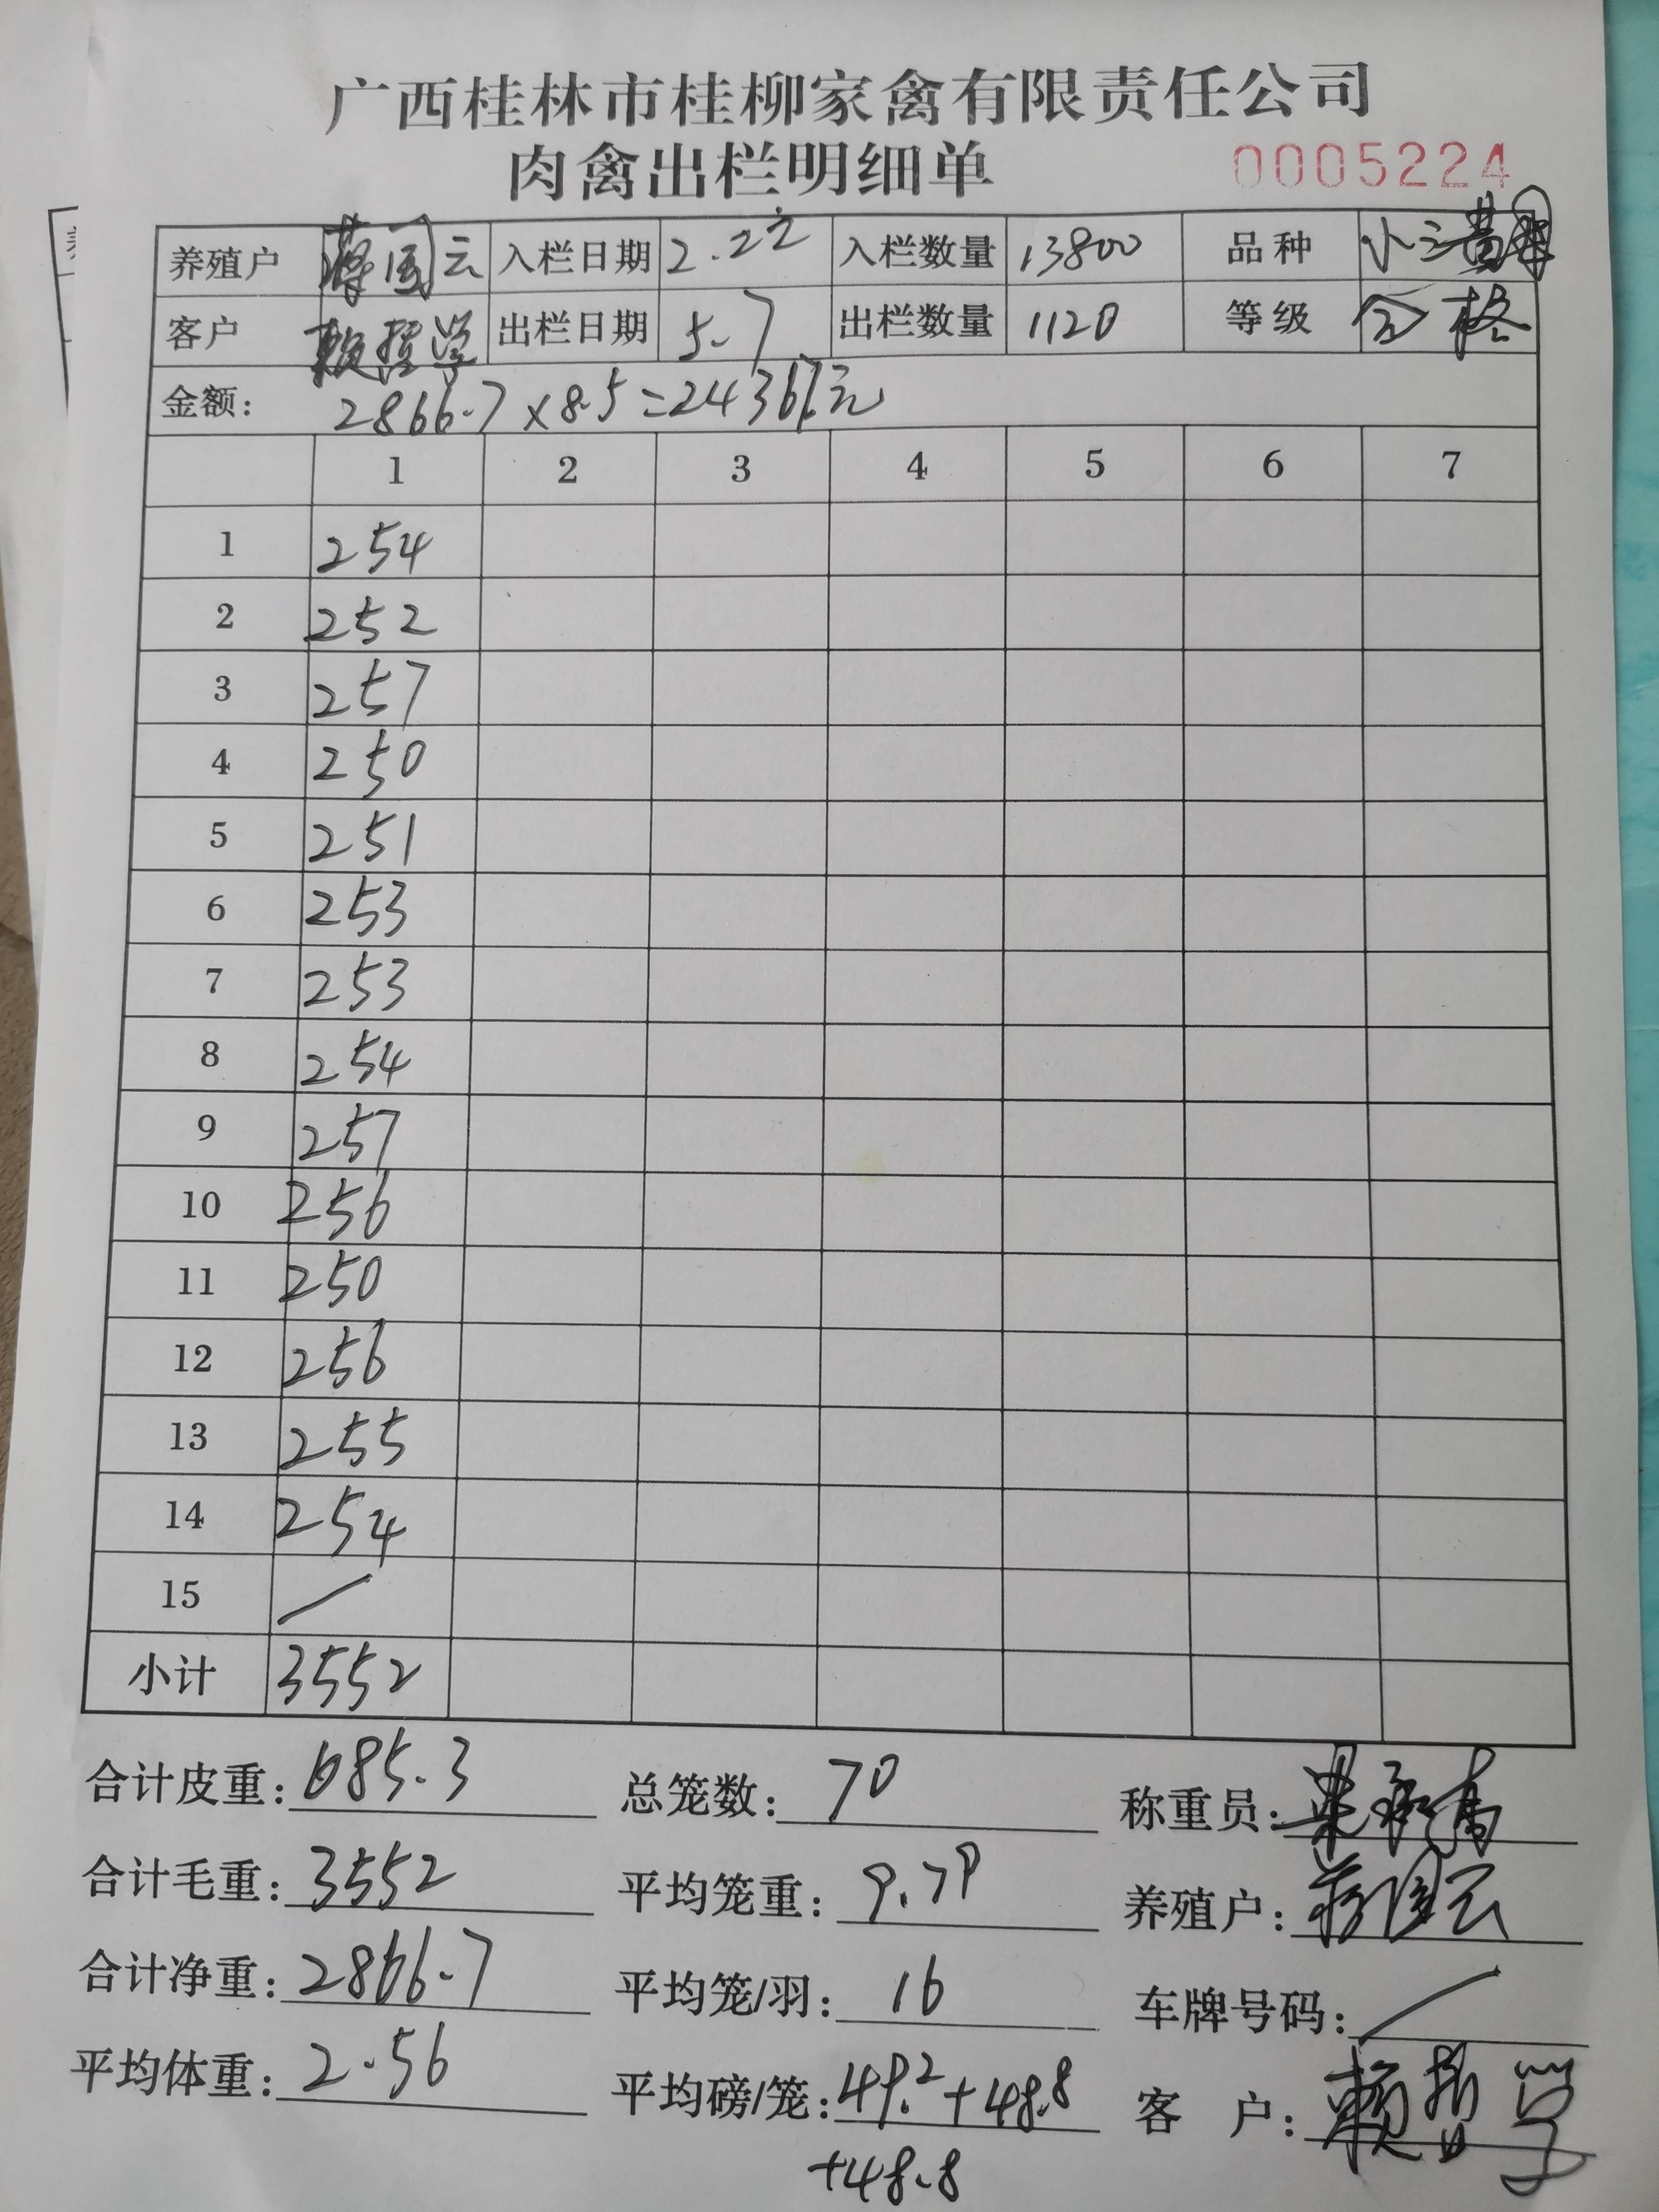 广西桂林市桂柳家禽有限责任公司
肉禽出栏明细单 0005224
养殖户 蒋国云 入栏日期 2.22 入栏数量 13800 品种 小三黄
客户 赖 学 出栏日期 5.7 出栏数量 1120 等级 合格
金额: 2866.7×8.5=24367元
1 2 3 4 5 6 7
1 254
2 252
3 257
4 250
5 251
6 253
7 253
8 254
9 257
10 256
11 250
12 256
13 255
14 254
15 /
小计 3552
合计皮重: 685.3 总笼数: 70 称重员:
合计毛重: 3552 平均笼重: 9.79 养殖户: 蒋国云
合计净重: 2866.7 平均笼/羽: 16 车牌号码: /
平均体重: 2.56 平均磅/笼: 49.2+48.8 客 户: 赖 学
+48.8